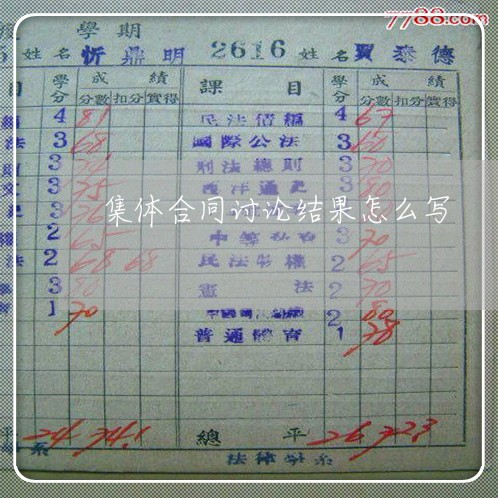 7788.com
學期
姓名 忻鼎明 2616 姓名 賈泰德
目 學分 成績 課目 學分 成績
分數 扣分 實得 分數 扣分 實得
4 81 民法債編 4 67
法 3 68 國際公法 3 60
3 刑法總則 3 70
3 75 西洋通史 3 80
集体合同讨论结果怎么写
3 70
法 2 68 68 民法物權 2 65
3 80 憲法 2 70
1 70 2 80
普通體育 1 78
平 24 74.1 總平 26 72.3
系 法律學系